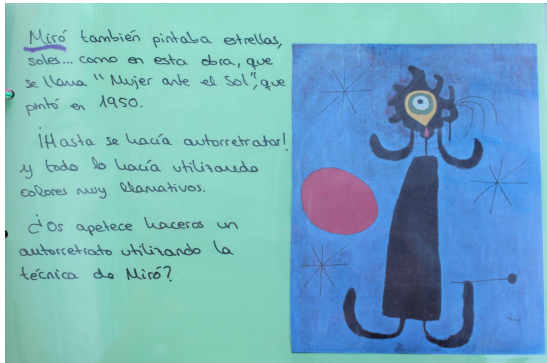 Miró también pintaba estrellas,
soles... como en esta obra, que
se llama "Mujer ante el Sol", que
pintó en 1950.
¡Hasta se hacía autorretratos!
y todo lo hacía utilizando
colores muy llamativos.
¿Os apetece haceros un
autorretrato utilizando la
técnica de Miró?